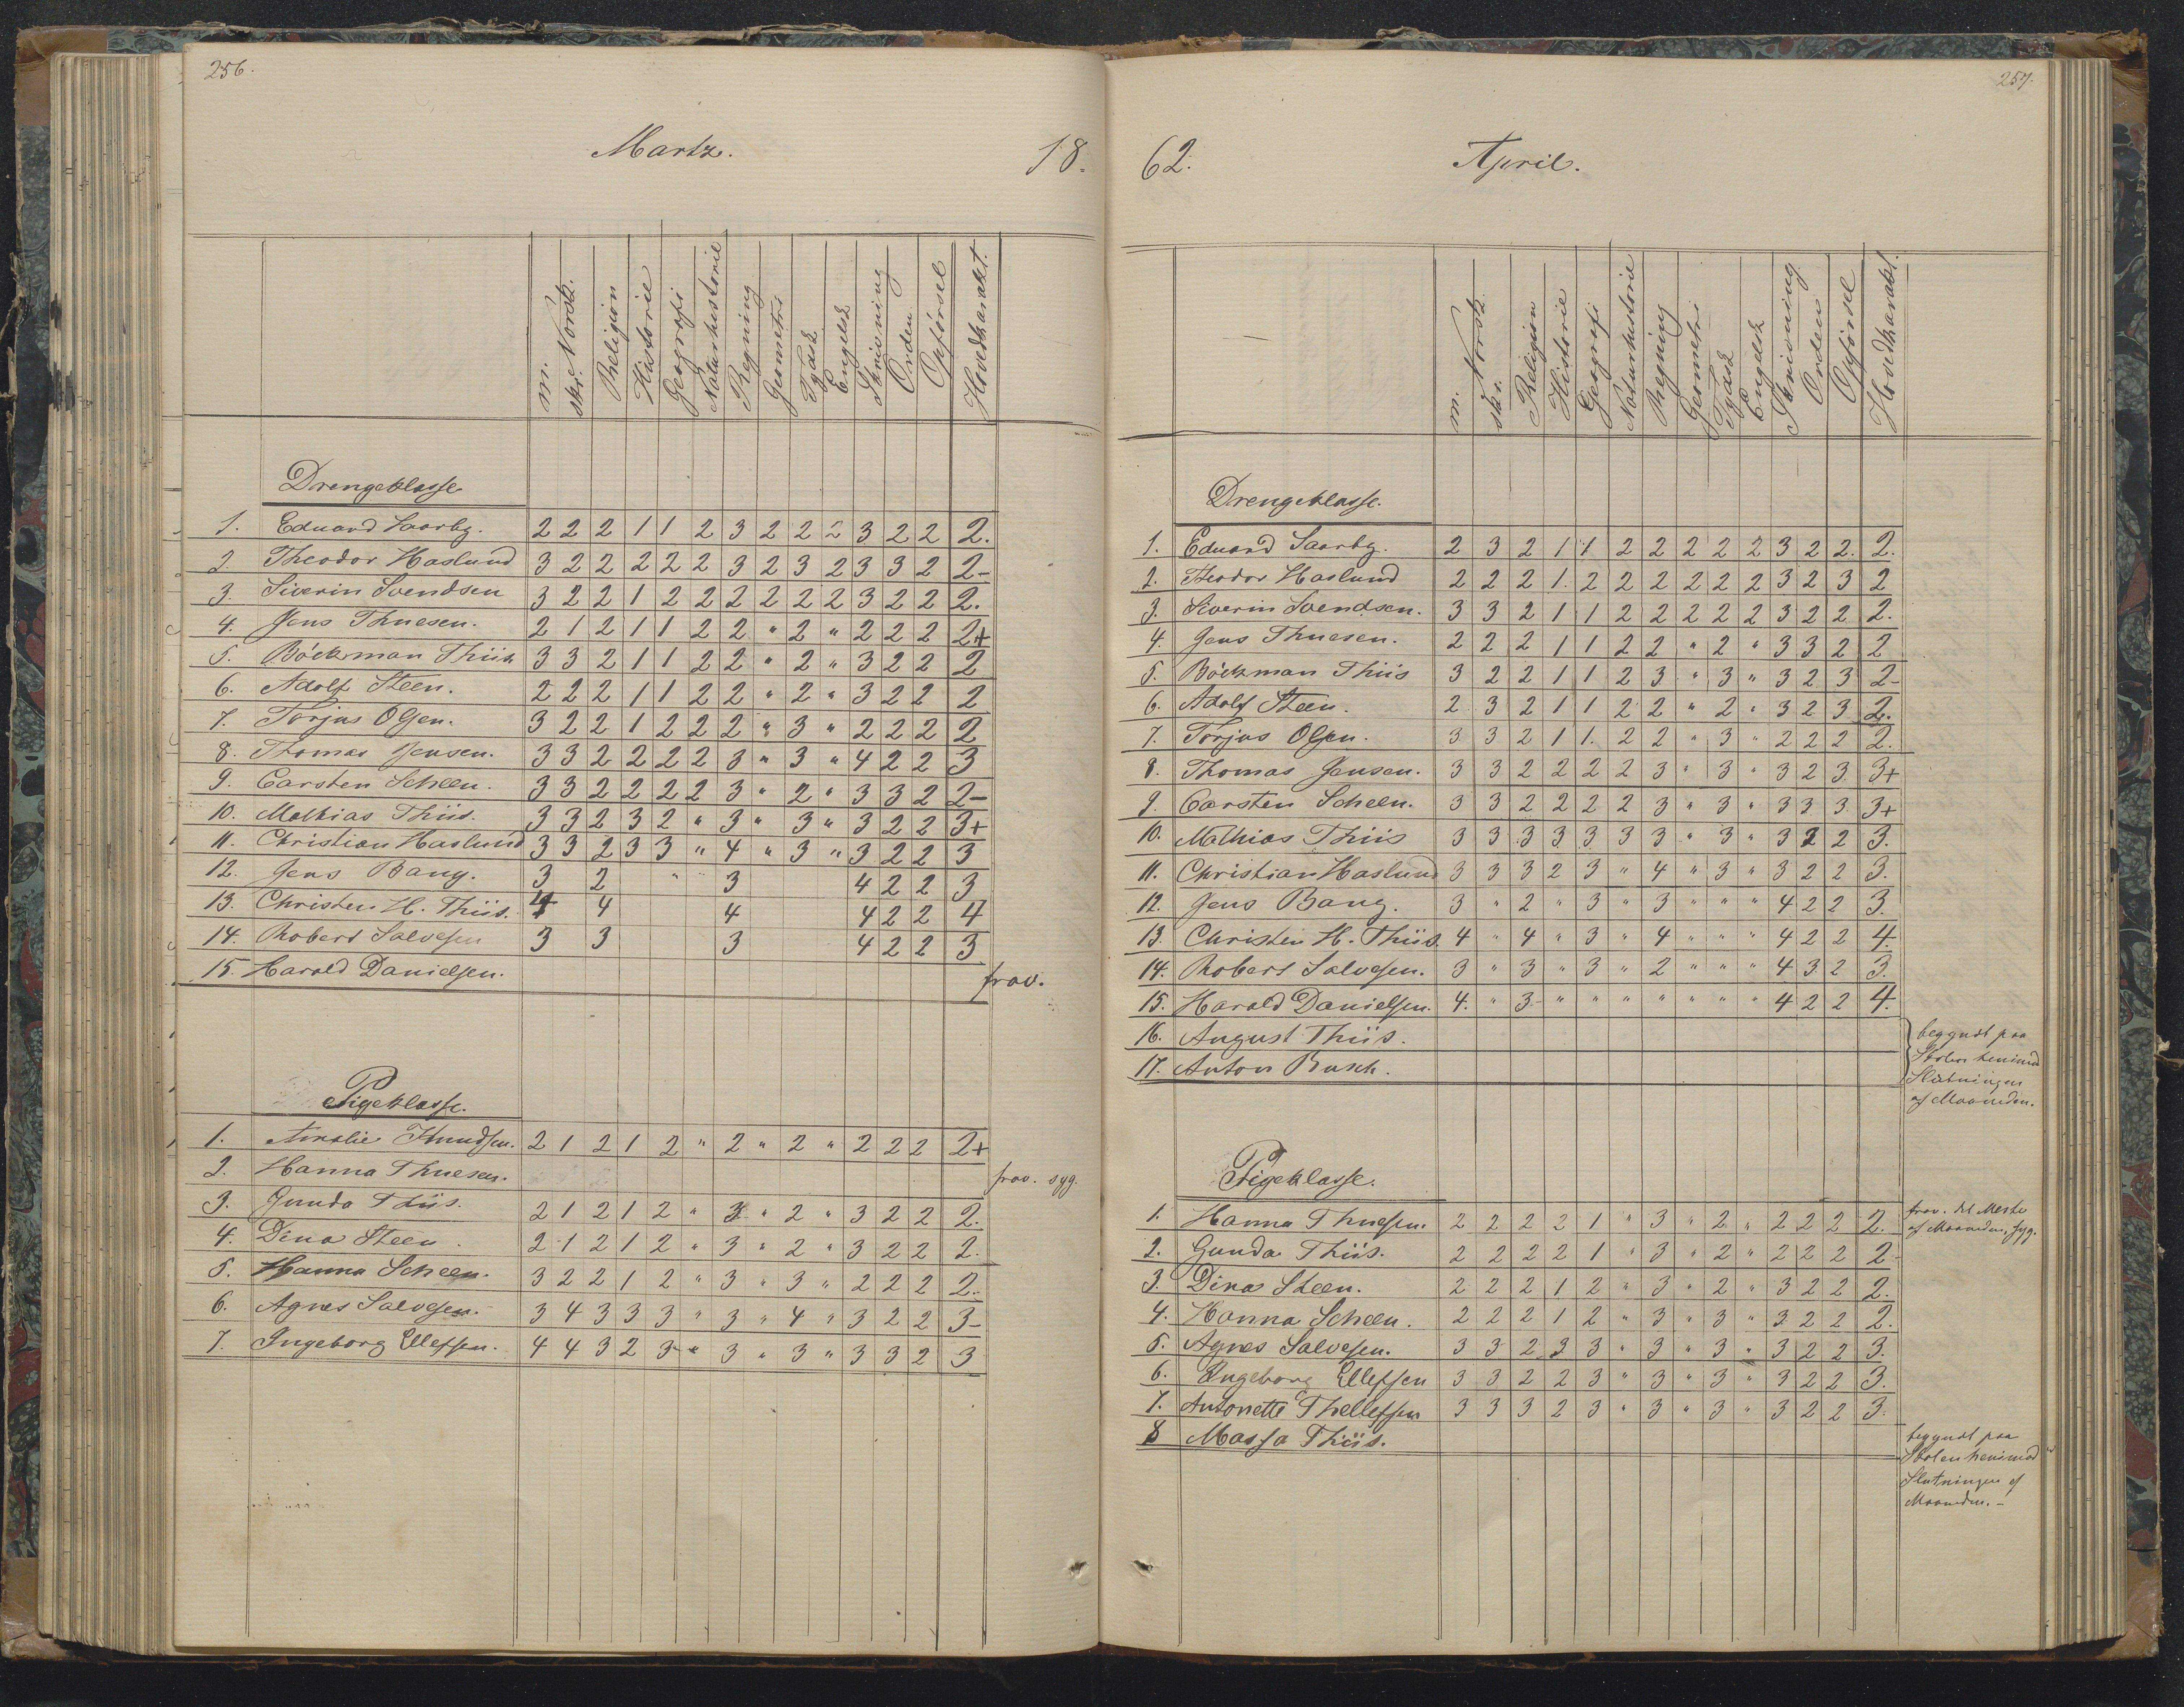 256.
Martz.
18.
m. Norsk. skr. Religion Historie Geografi Naturhistorie Regning Geometri Tydsk Engelsk Skrivning Orden Opførsel Hovedkarakt.
Drengeklasse
1. Eduard Saarby. 2 2 2 1 1 2 3 2 2 2 3 2 2 2.
2. Theodor Haslund 3 2 2 2 2 2 3 2 3 2 3 3 2 2-
3. Siverin Svendsen 3 2 2 1 2 2 2 2 2 2 3 2 2 2.
4. Jens Thuesen. 2 1 2 1 1 2 2 " 2 " 2 2 2 2+
5. Böckman Thiis 3 3 2 1 1 2 2 " 2 " 3 2 2 2
6. Adolf Steen. 2 2 2 1 1 2 2 " 2 " 3 2 2 2
7. Torjus Olsen. 3 2 2 1 2 2 2 " 3 " 2 2 2 2
8. Thomas Jensen. 3 3 2 2 2 2 3 " 3 " 4 2 2 3
9. Carsten Scheen. 3 3 2 2 2 2 3 " 2 " 3 3 2 2-
10. Mathias Thiis. 3 3 2 3 2 " 3 " 3 " 3 2 2 3+
11. Christian Haslund 3 3 2 3 3 " 4 " 3 " 3 2 2 3
12. Jens Bang. 3 2 " 3 4 2 2 3
13. Christen H. Thiis. 4 4 4 4 2 2 4
14. Robert Salvesen 3 3 3 4 2 2 3
15. Harald Danielsen. frav.
Pigeklasse.
1. Amalie Knudsen. 2 1 2 1 2 " 2 " 2 " 2 2 2 2+
2. Hanna Thuesen. frav. syg.
3. Gunda Thiis. 2 1 2 1 2 " 3 " 2 " 3 2 2 2.
4. Dina Steen. 2 1 2 1 2 " 3 " 2 " 3 2 2 2.
5. Hanna Scheen. 3 2 2 1 2 " 3 " 3 " 2 2 2 2.
6. Agnes Salvesen. 3 4 3 3 3 " 3 " 4 " 3 2 2 3-
7. Ingeborg Ellefsen. 4 4 3 2 3 " 3 " 3 " 3 3 2 3
257.
62.
April.
m. Norsk. skr. Religion Historie Geografi Naturhistorie Regning Geometri Tydsk Engelsk Skrivning Orden Opførsel Hovedkarakt.
Drengeklasse.
1. Eduard Saarby. 2 3 2 1 1 2 2 2 2 2 3 2 2. 2.
2. Theodor Haslund 2 2 2 1. 2 2 2 2 2 2 3 2 3 2
3. Siverin Svendsen. 3 3 2 1 1 2 2 2 2 2 3 2 2 2.
4. Jens Thuesen. 2 2 2 1 1 2 2 " 2 " 3 3 2 2
5. Böckman Thiis 3 2 2 1 1 2 3 " 3 " 3 2 3 2-
6. Adolf Steen. 2 3 2 1 1 2 2 " 2 " 3 2 3 2.
7. Torjus Olsen. 3 3 2 1 1. 2 2 " 3 " 2 2 2 2.
8. Thomas Jensen. 3 3 2 2 2 2 3 " 3 " 3 2 3 3+
9. Carsten Scheen. 3 3 2 2 2 2 3 " 3 " 3 3 3 3+
10. Mathias Thiis 3 3 3 3 3 3 3 " 3 " 3 2 2 3.
11. Christian Haslund 3 3 3 2 3 " 4 " 3 " 3 2 2 3.
12. Jens Bang. 3 " 2 " 3 " 3 " " " 4 2 2 3.
13. Christen H. Thiis. 4 " 4 " 3 " 4 " " " 4 2 2 4.
14. Robert Salvesen. 3 " 3 " 3 " 2 " " " 4 3 2 3.
15. Harald Danielsen. 4. " 3 " " " " " " " 4 2 2 4.
16. August Thiis.
17. Anton Busch.
begyndt paa
Skolen henimod
Slutningen
af Maaneden.
Pigeklasse.
1. Hanna Thuesen. 2 2 2 2 1 " 3 " 2 " 2 2 2 2. frav. det Meste
af Maaneden, syg.
2. Gunda Thiis. 2 2 2 2 1 " 3 " 2 " 2 2 2 2
3. Dina Steen. 2 2 2 1 2 " 3 " 2 " 3 2 2 2.
4. Hanna Scheen. 2 2 2 1 2 " 3 " 3 " 3 2 2 2.
5. Agnes Salvesen. 3 3 2 3 3 " 3 " 3 " 3 2 2 3.
6. Ingeborg Ellefsen 3 3 2 2 3 " 3 " 3 " 3 2 2 3.
7. Antonette Thellefsen 3 3 3 2 3 " 3 " 3 " 3 2 2 3.
8 Massa Thiis.
begyndt paa
Skolen henimod
Slutningen af
Maaneden. -